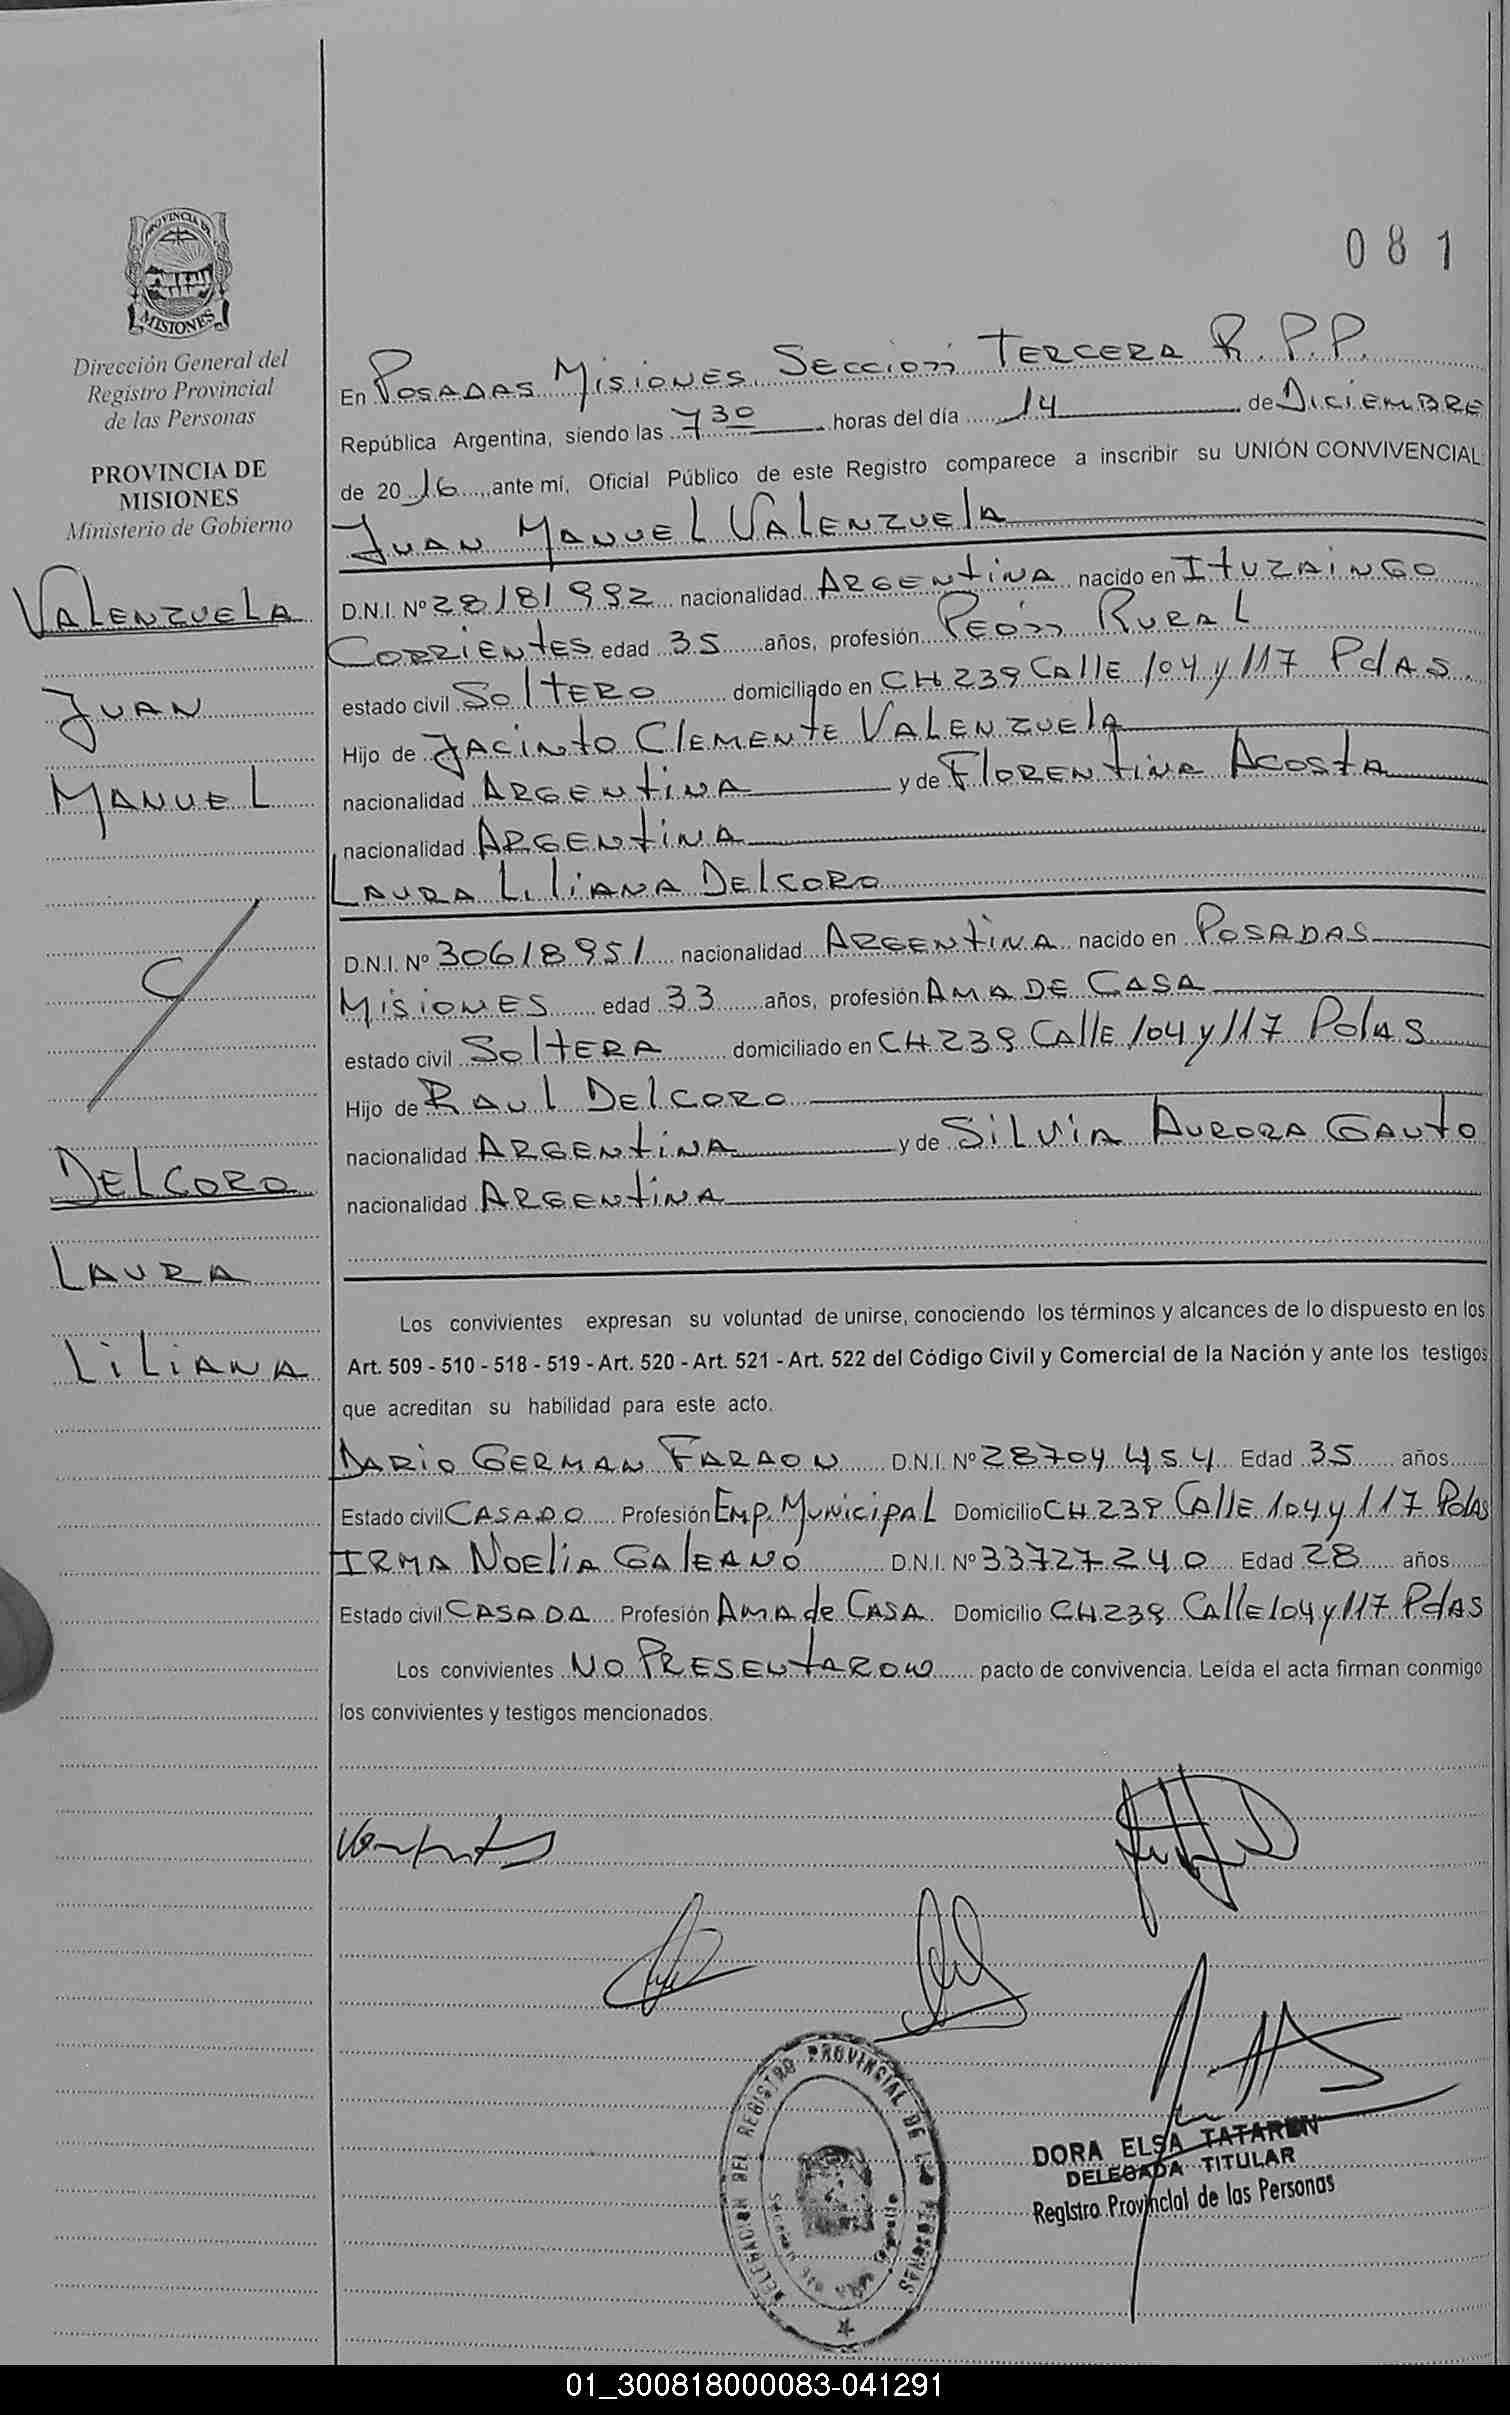 PROVINCIA DE
MISIONES
Dirección General del
Registro Provincial
de las Personas
PROVINCIA DE
MISIONES
Ministerio de Gobierno
VALENZUELA
JUAN
MANUEL
DELCORO
LAURA
LILIANA
081
En POSADAS MISIONES SECCIÓN TERCERA R.P.P.
República Argentina, siendo las 7 30 horas del día 14 de DICIEMBRE
de 20 16 ante mí, Oficial Público de este Registro comparece a inscribir su UNIÓN CONVIVENCIAL
JUAN MANUEL VALENZUELA
D.N.I. Nº 28181992 nacionalidad ARGENTINA nacido en ITUZAINGO
CORRIENTES edad 35 años, profesión PEÓN RURAL
estado civil SOLTERO domiciliado en CH 239 CALLE 104 y 117 PdAS.
Hijo de JACINTO CLEMENTE VALENZUELA
nacionalidad ARGENTINA y de FLORENTINA ACOSTA
nacionalidad ARGENTINA
LAURA LILIANA DELCORO
D.N.I. Nº 30618951 nacionalidad ARGENTINA nacido en POSADAS
MISIONES edad 33 años, profesión AMA DE CASA
estado civil SOLTERA domiciliado en CH 239 CALLE 104 y 117 PdAS
Hijo de RAUL DELCORO
nacionalidad ARGENTINA y de SILVIA AURORA GAUTO
nacionalidad ARGENTINA
Los convivientes expresan su voluntad de unirse, conociendo los términos y alcances de lo dispuesto en los
Art. 509 - 510 - 518 - 519 - Art. 520 - Art. 521 - Art. 522 del Código Civil y Comercial de la Nación y ante los testigos
que acreditan su habilidad para este acto.
DARIO GERMAN FARAON D.N.I. Nº 28704454 Edad 35 años
Estado civil CASADO Profesión EMP. MUNICIPAL Domicilio CH 239 CALLE 104 y 117 PdAS
IRMA NOELIA GALEANO D.N.I. Nº 33727240 Edad 28 años
Estado civil CASADA Profesión AMA de CASA Domicilio CH 239 CALLE 104 y 117 PdAS
Los convivientes NO PRESENTARON pacto de convivencia. Leída el acta firman conmigo
los convivientes y testigos mencionados.
DELEGACION DEL REGISTRO PROVINCIAL DE LAS PERSONAS
DORA ELSA TATAREN
DELEGADA TITULAR
Registro Provincial de las Personas
01_300818000083-041291